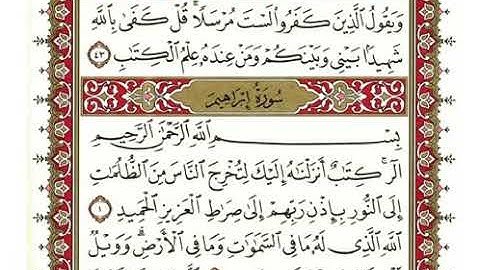 وَيَقُولُ الَّذِينَ كَفَرُوا لَسْتَ مُرْسَلًا ۚ قُلْ كَفَىٰ بِاللَّهِ
شَهِيدًا بَيْنِي وَبَيْنَكُمْ وَمَنْ عِندَهُ عِلْمُ الْكِتَابِ ٤٣
سُورَةُ إِبْرَاهِيمَ
بِسْمِ اللَّهِ الرَّحْمَٰنِ الرَّحِيمِ
الر ۚ كِتَابٌ أَنزَلْنَاهُ إِلَيْكَ لِتُخْرِجَ النَّاسَ مِنَ الظُّلُمَاتِ
إِلَى النُّورِ بِإِذْنِ رَبِّهِمْ إِلَىٰ صِرَاطِ الْعَزِيزِ الْحَمِيدِ ١
اللَّهِ الَّذِي لَهُ مَا فِي السَّمَاوَاتِ وَمَا فِي الْأَرْضِ ۗ وَوَيْلٌ